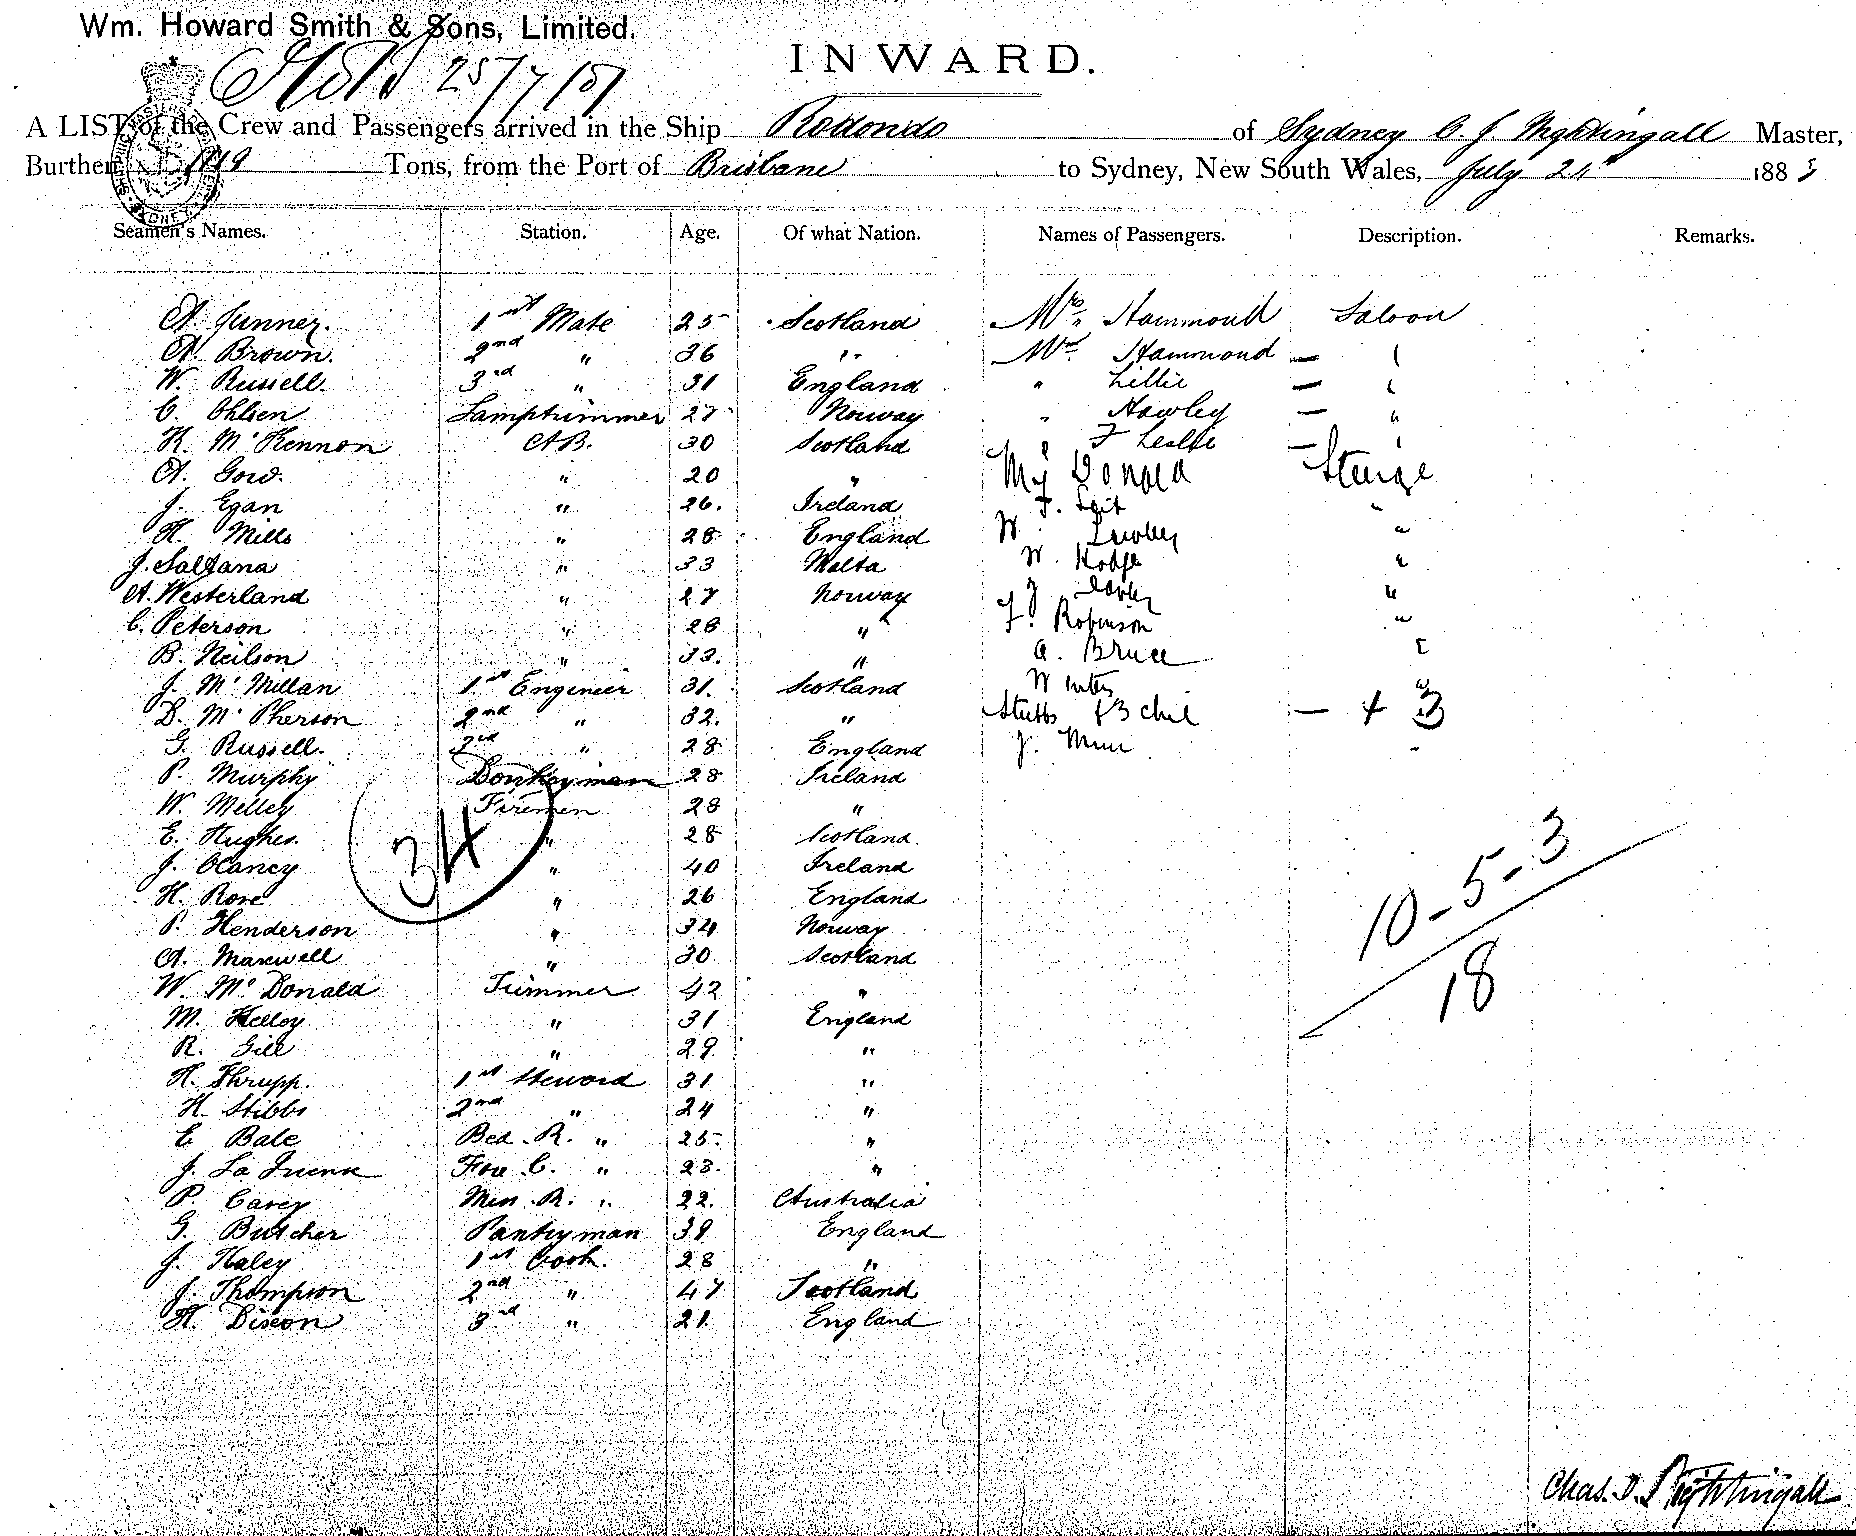 Wm. Howard Smith & Sons, Limited.
25/7/
INWARD.
A LIST of the Crew and Passengers arrived in the Ship Rodondo of Sydney C. J. Nightingall Master,
Burthen Tons, from the Port of Brisbane to Sydney, New South Wales, July 21st 188
Seamen's Names. Station. Age. Of what Nation. Names of Passengers. Description. Remarks.
A. Junner. 1st Mate 25 Scotland Mrs. Hammond Saloon
A. Brown. 2nd " 36 " Mr. Hammond — "
W. Russell. 3rd " 31 England " Lillie — "
C. Ohlsen Lamptrimmer 27 Norway " Hawley — "
K. McKennon A.B. 30 Scotland " F Leslie — "
A. Gow. " 20 " Donald Steerage
J. Egan " 26. Ireland F. "
H. Mills " 28 England W "
J. Saltana " 33 Malta W. Hodge "
A. Westerland " 27 Norway J "
C. Peterson " 28 " F. Robinson "
B. Neilson " 33. " A. Bruce "
J. McMillan 1st Engineer 31. Scotland W "
D. McPherson 2nd " 32. " Stubbs & 3 chil — + 3
G. Russell. 3rd " 28 England J. Muir "
P. Murphy Donkeyman 28 Ireland
W. Melley Firemen 28 "
E. Hughes. " 28 Scotland
J. Clancy " 40 Ireland
H. Rose " 26 England
P. Henderson " 34 Norway
A. Maxwell " 30 Scotland
W. McDonald Trimmer 42 "
M. Kelley " 31 England
R. Gill " 29 "
H. Thrupp. 1st Steward 31 "
H. Stibbs 2nd " 24 "
E. Bale Bed. R. " 25 "
J. La Fore C. " 23. "
P. Carey Mess. R. " 22. Australia
G. Butcher Pantryman 39 England
J. Haley 1st Cook. 28 "
J. Thompson 2nd " 47 Scotland
H. Dixon 3rd " 21 England
34
10-5-3
18
Chas. J. Nightingall